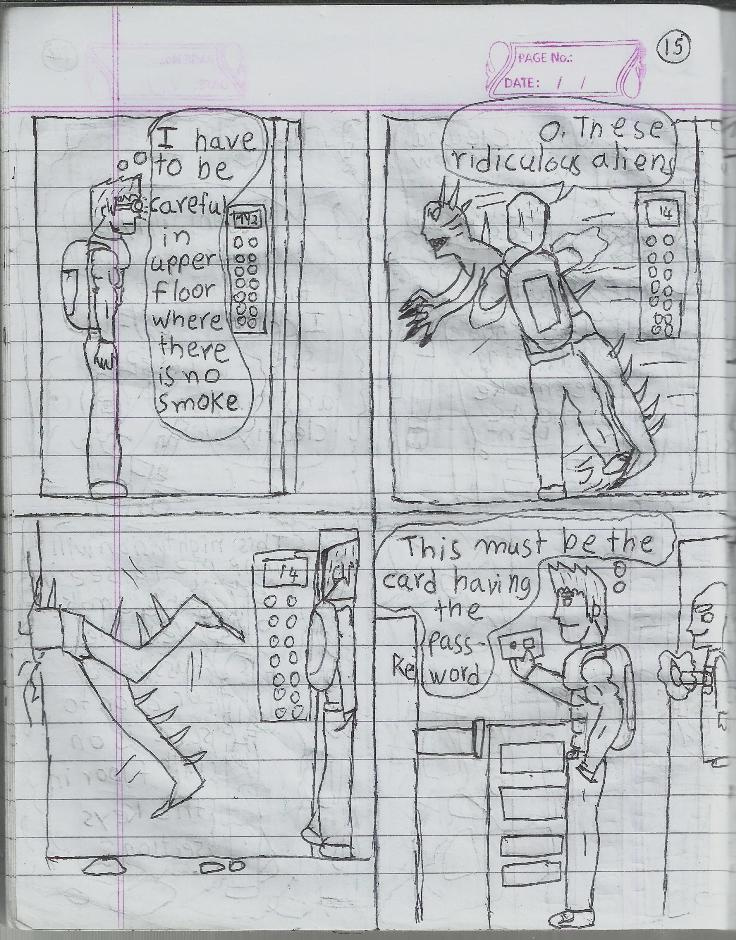 15
PAGE No.:
DATE: / /
I have
to be
careful
in
upper
floor
where
there
is no
smoke
O. These
ridiculous aliens
14
14
This must be the
card having
the
pass-
word
Re